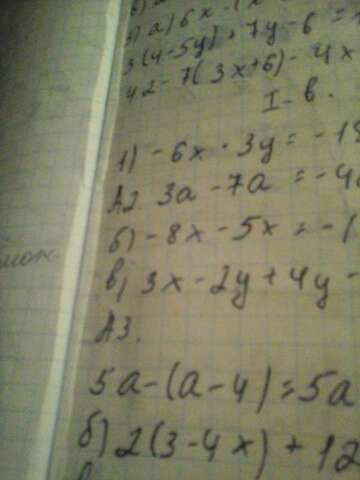 а) 6x - (x
3(4-5y) + 7y - 6 =
42 - 7(3x+6) - 4x
I - в.
1) -6x · 3y = -18
А2. 3a - 7a = -4a
б) -8x - 5x = -1
в) 3x - 2y + 4y -
А3.
5a - (a - 4) = 5a
б) 2(3 - 4x) + 12